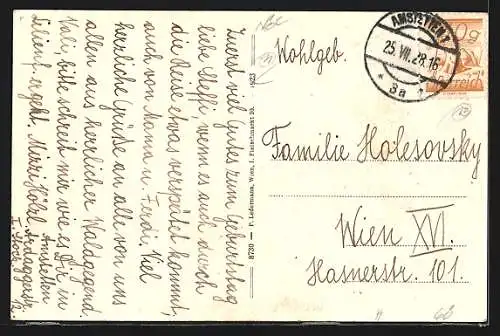 Zuerst viel Gutes zum Geburtstag
liebe Steffi, wenn es auch durch
die Reise etwas verspätet kommt,
auch von Mama u. Ferdi. Viel
herzliche Grüße an alle von uns
allen aus herrlicher Waldgegend.
Poldi, bitte schreib mir wie es Dir in
ergeht. Mizzi Hölzl. Ardaggerstr.
Amstetten
I. Stock
8730 — P. Ledermann, Wien, I. Fleischmarkt 20.
AMSTETTEN
25.VII.28.16
* 3a *
Wohlgeb.
Familie Holesovsky
Wien XVI.
Hasnerstr. 101.